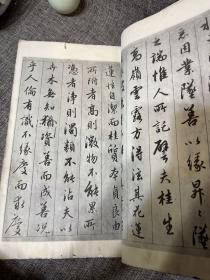 惡因業墜善以緣昇〻墜
之端惟人所託譬夫桂生
高嶺雲露方得泫其花蓮
蓮性自潔而桂質本貞良由
所附者高則微物不能累所
憑者淨則濁類不能沾夫以
卉木無知猶資善而成善況
乎人倫有識不緣慶而求慶